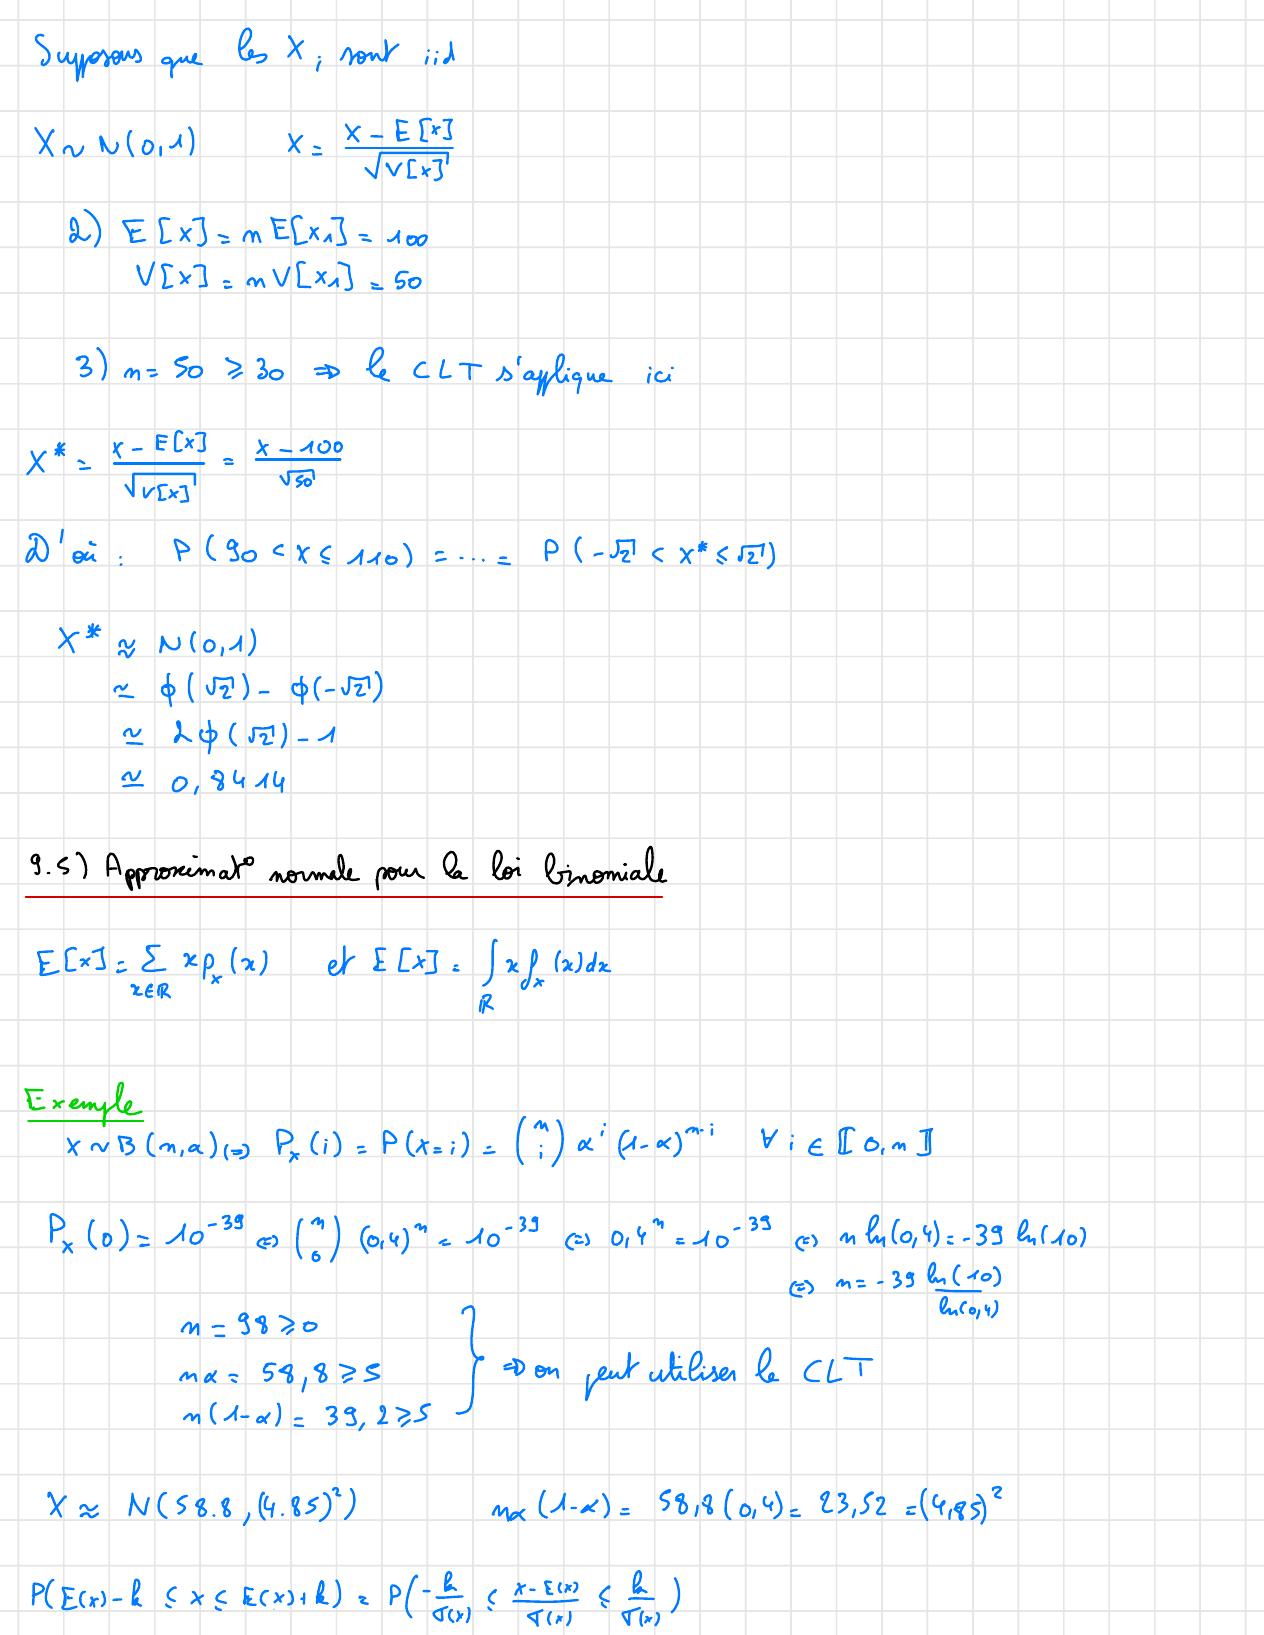 Supposons que les X_i sont iid
X ~ N(0,1) X = (X - E[X]) / √V[X]
2) E[X] = n E[X_1] = 100
V[X] = n V[X_1] = 50
3) n = 50 ≥ 30 ⇒ le CLT s'applique ici
X* = (X - E[X]) / √V[X] = (X - 100) / √50
D'où : P(90 < X ≤ 110) = ... = P(-√2 < X* ≤ √2)
X* ≈ N(0,1)
≃ ϕ(√2) - ϕ(-√2)
≃ 2ϕ(√2) - 1
≃ 0,8414
9.5) Approximat° normale pour la loi binomiale
E[X] = Σ_{x∈ℝ} x p_X(x) et E[X] = ∫_ℝ x f_X(x) dx
Exemple
X ~ B(n,α) ⇔ P_X(i) = P(X=i) = (n i) α^i (1-α)^{n-i} ∀ i ∈ ⟦0,n⟧
P_X(0) = 10^{-39} ⇔ (n 0) (0,4)^n = 10^{-39} ⇔ 0,4^n = 10^{-39} ⇔ n ln(0,4) = -39 ln(10)
⇔ n = -39 ln(10) / ln(0,4)
n = 98 ≥ 0
nα = 58,8 ≥ 5 } ⇒ on peut utiliser le CLT
n(1-α) = 39,2 ≥ 5
X ≈ N(58.8, (4.85)²) nα(1-α) = 58,8(0,4) = 23,52 = (4,85)²
P(E(X) - k ≤ X ≤ E(X) + k) = P(-k/σ(X) ≤ (X - E(X))/σ(X) ≤ k/σ(X))